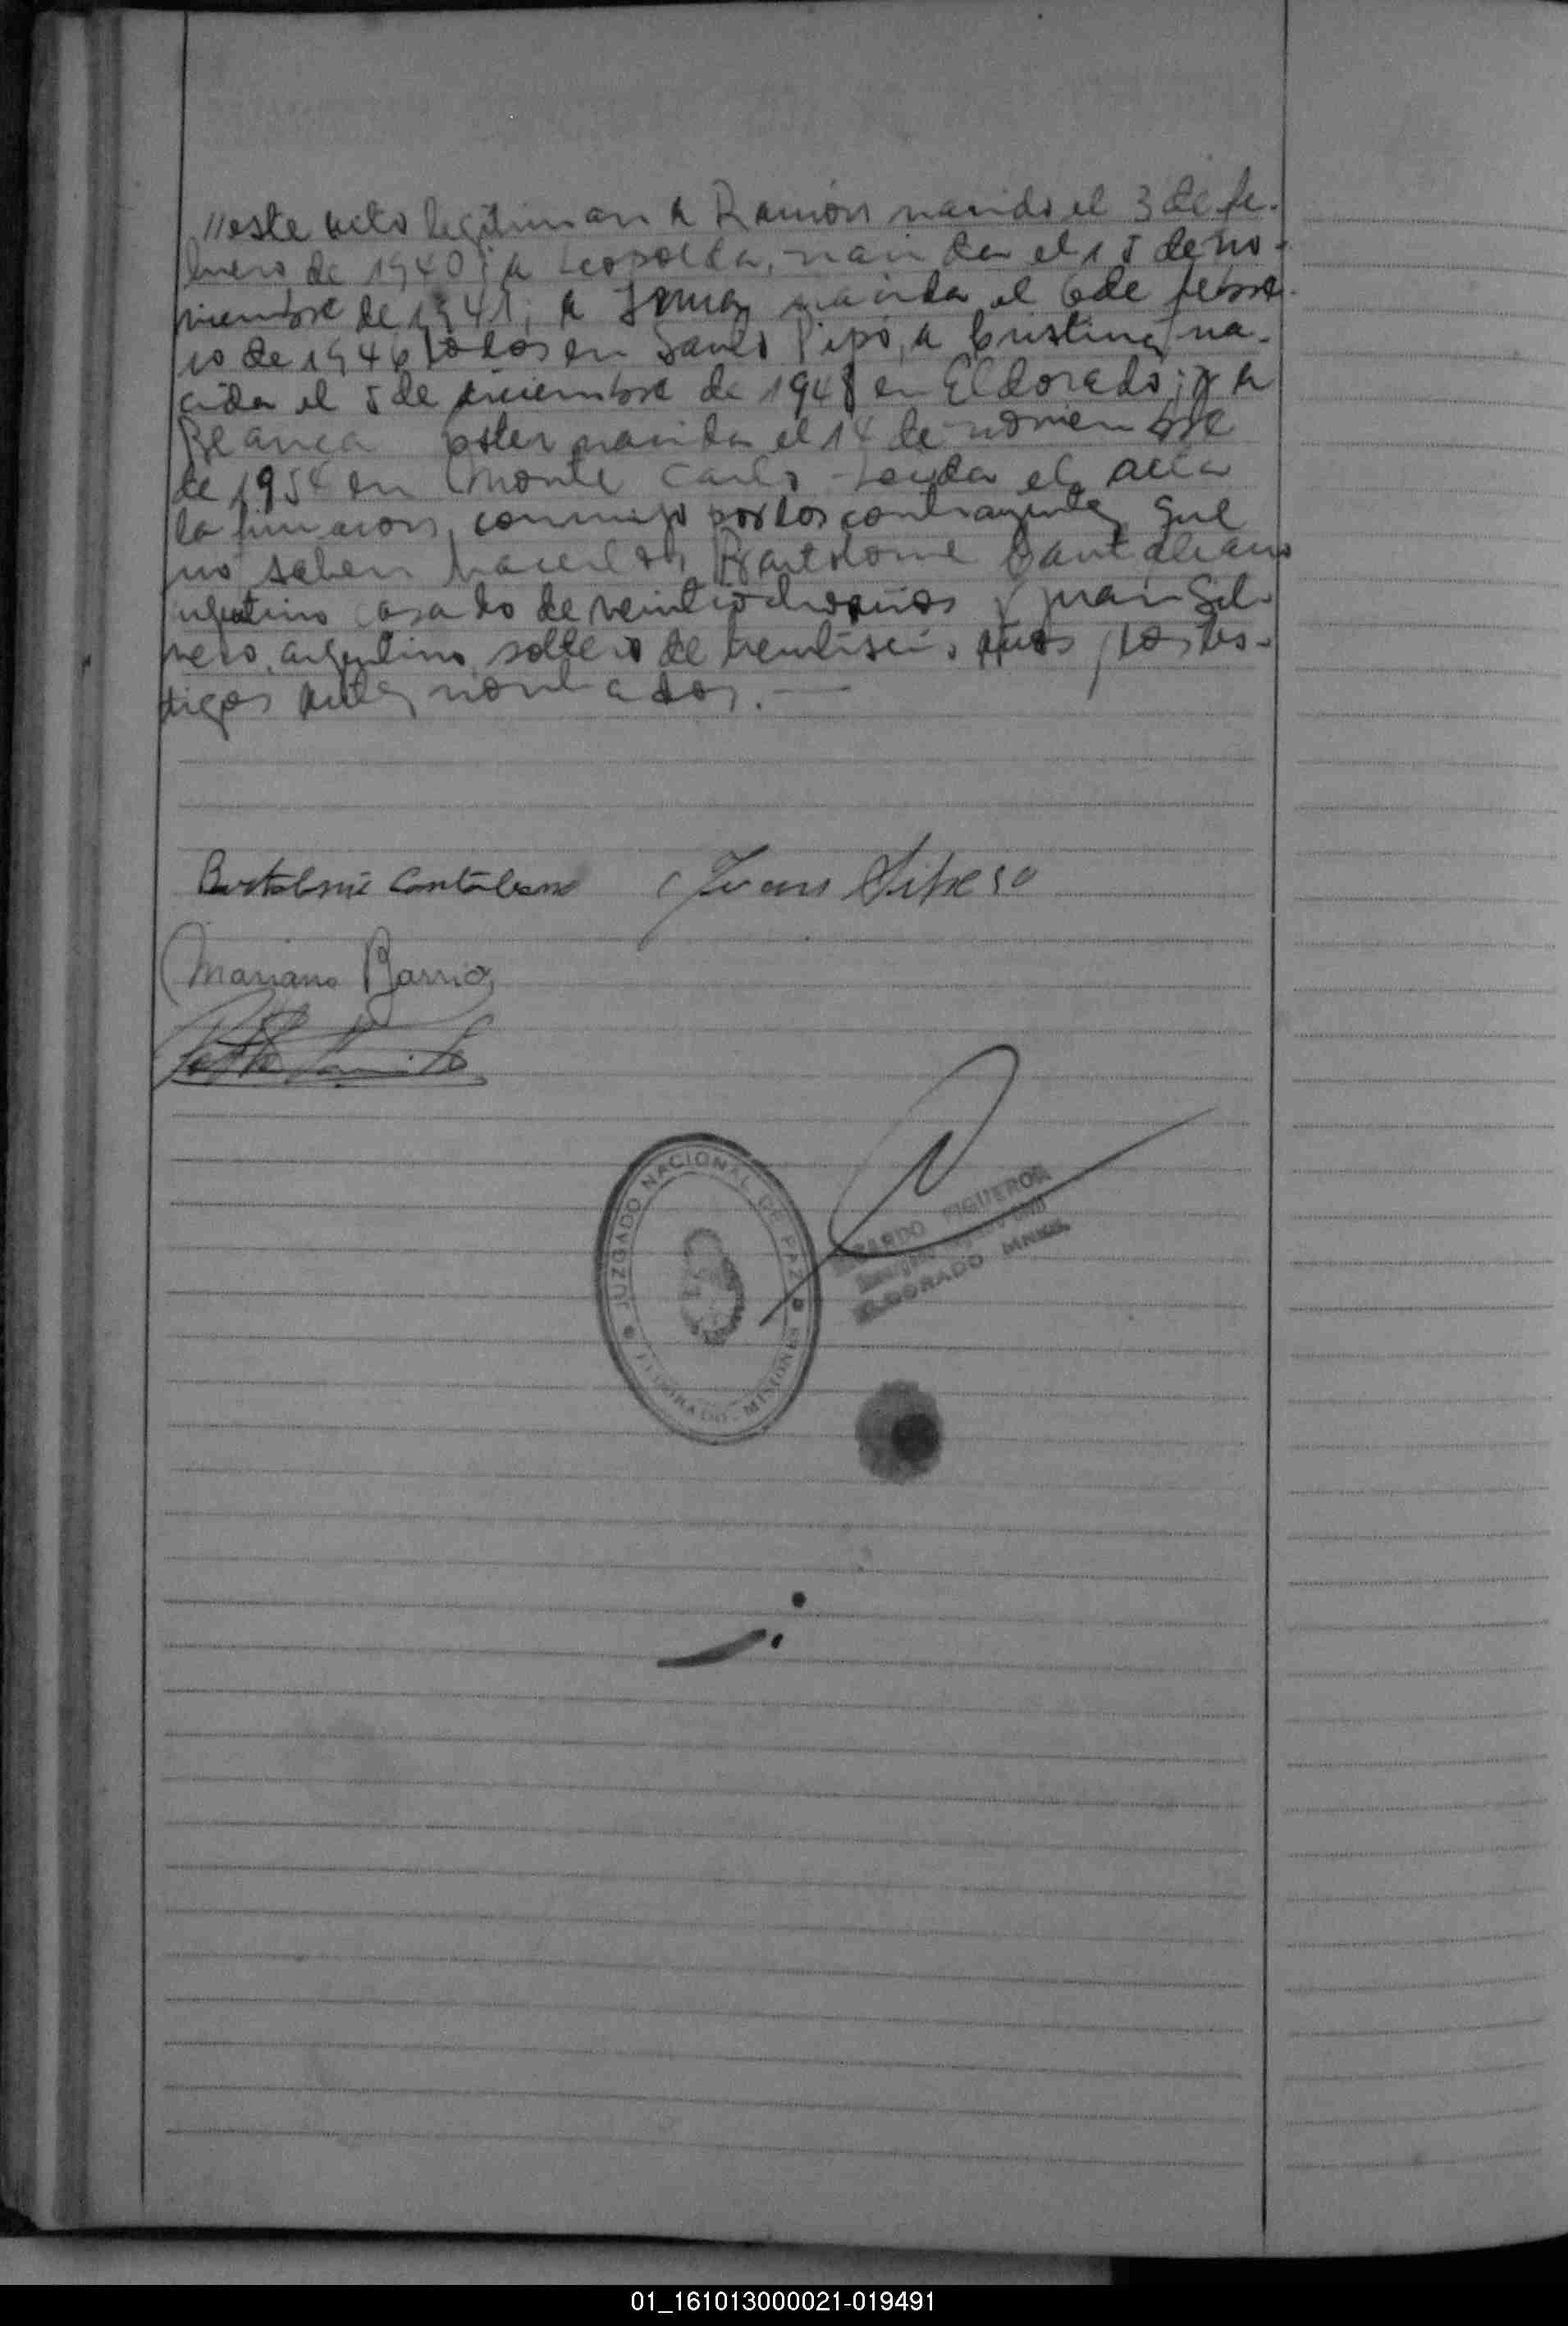 //este acto legitiman a Ramón nacido el 3 de fe-
brero de 1940; a Leopolda, nacida el 15 de no-
viembre de 1941; a Irma nacida el 6 de febre-
ro de 1946 todos en Santo Pipó, a Cristina na-
cida el 5 de diciembre de 1948 en Eldorado; y a
Blanca Ester nacida el 14 de noviembre
de 1954 en Monte Carlo - Leida el acta
la firmaron conmigo por los contrayentes que
no saben hacerlo, Bartolome Cantaliano
argentino casado de veintiocho años y Juan Sil-
vero, argentino, soltero de treintiseis años y los tes-
tigos antes nombrados. —
Bartolomé Cantaliano Juan Silvero
Mariano Barrios
JUZGADO NACIONAL DE PAZ
ELDORADO - MISIONES
FIGUEROA
Registro Civil
ELDORADO MNES
01_161013000021-019491